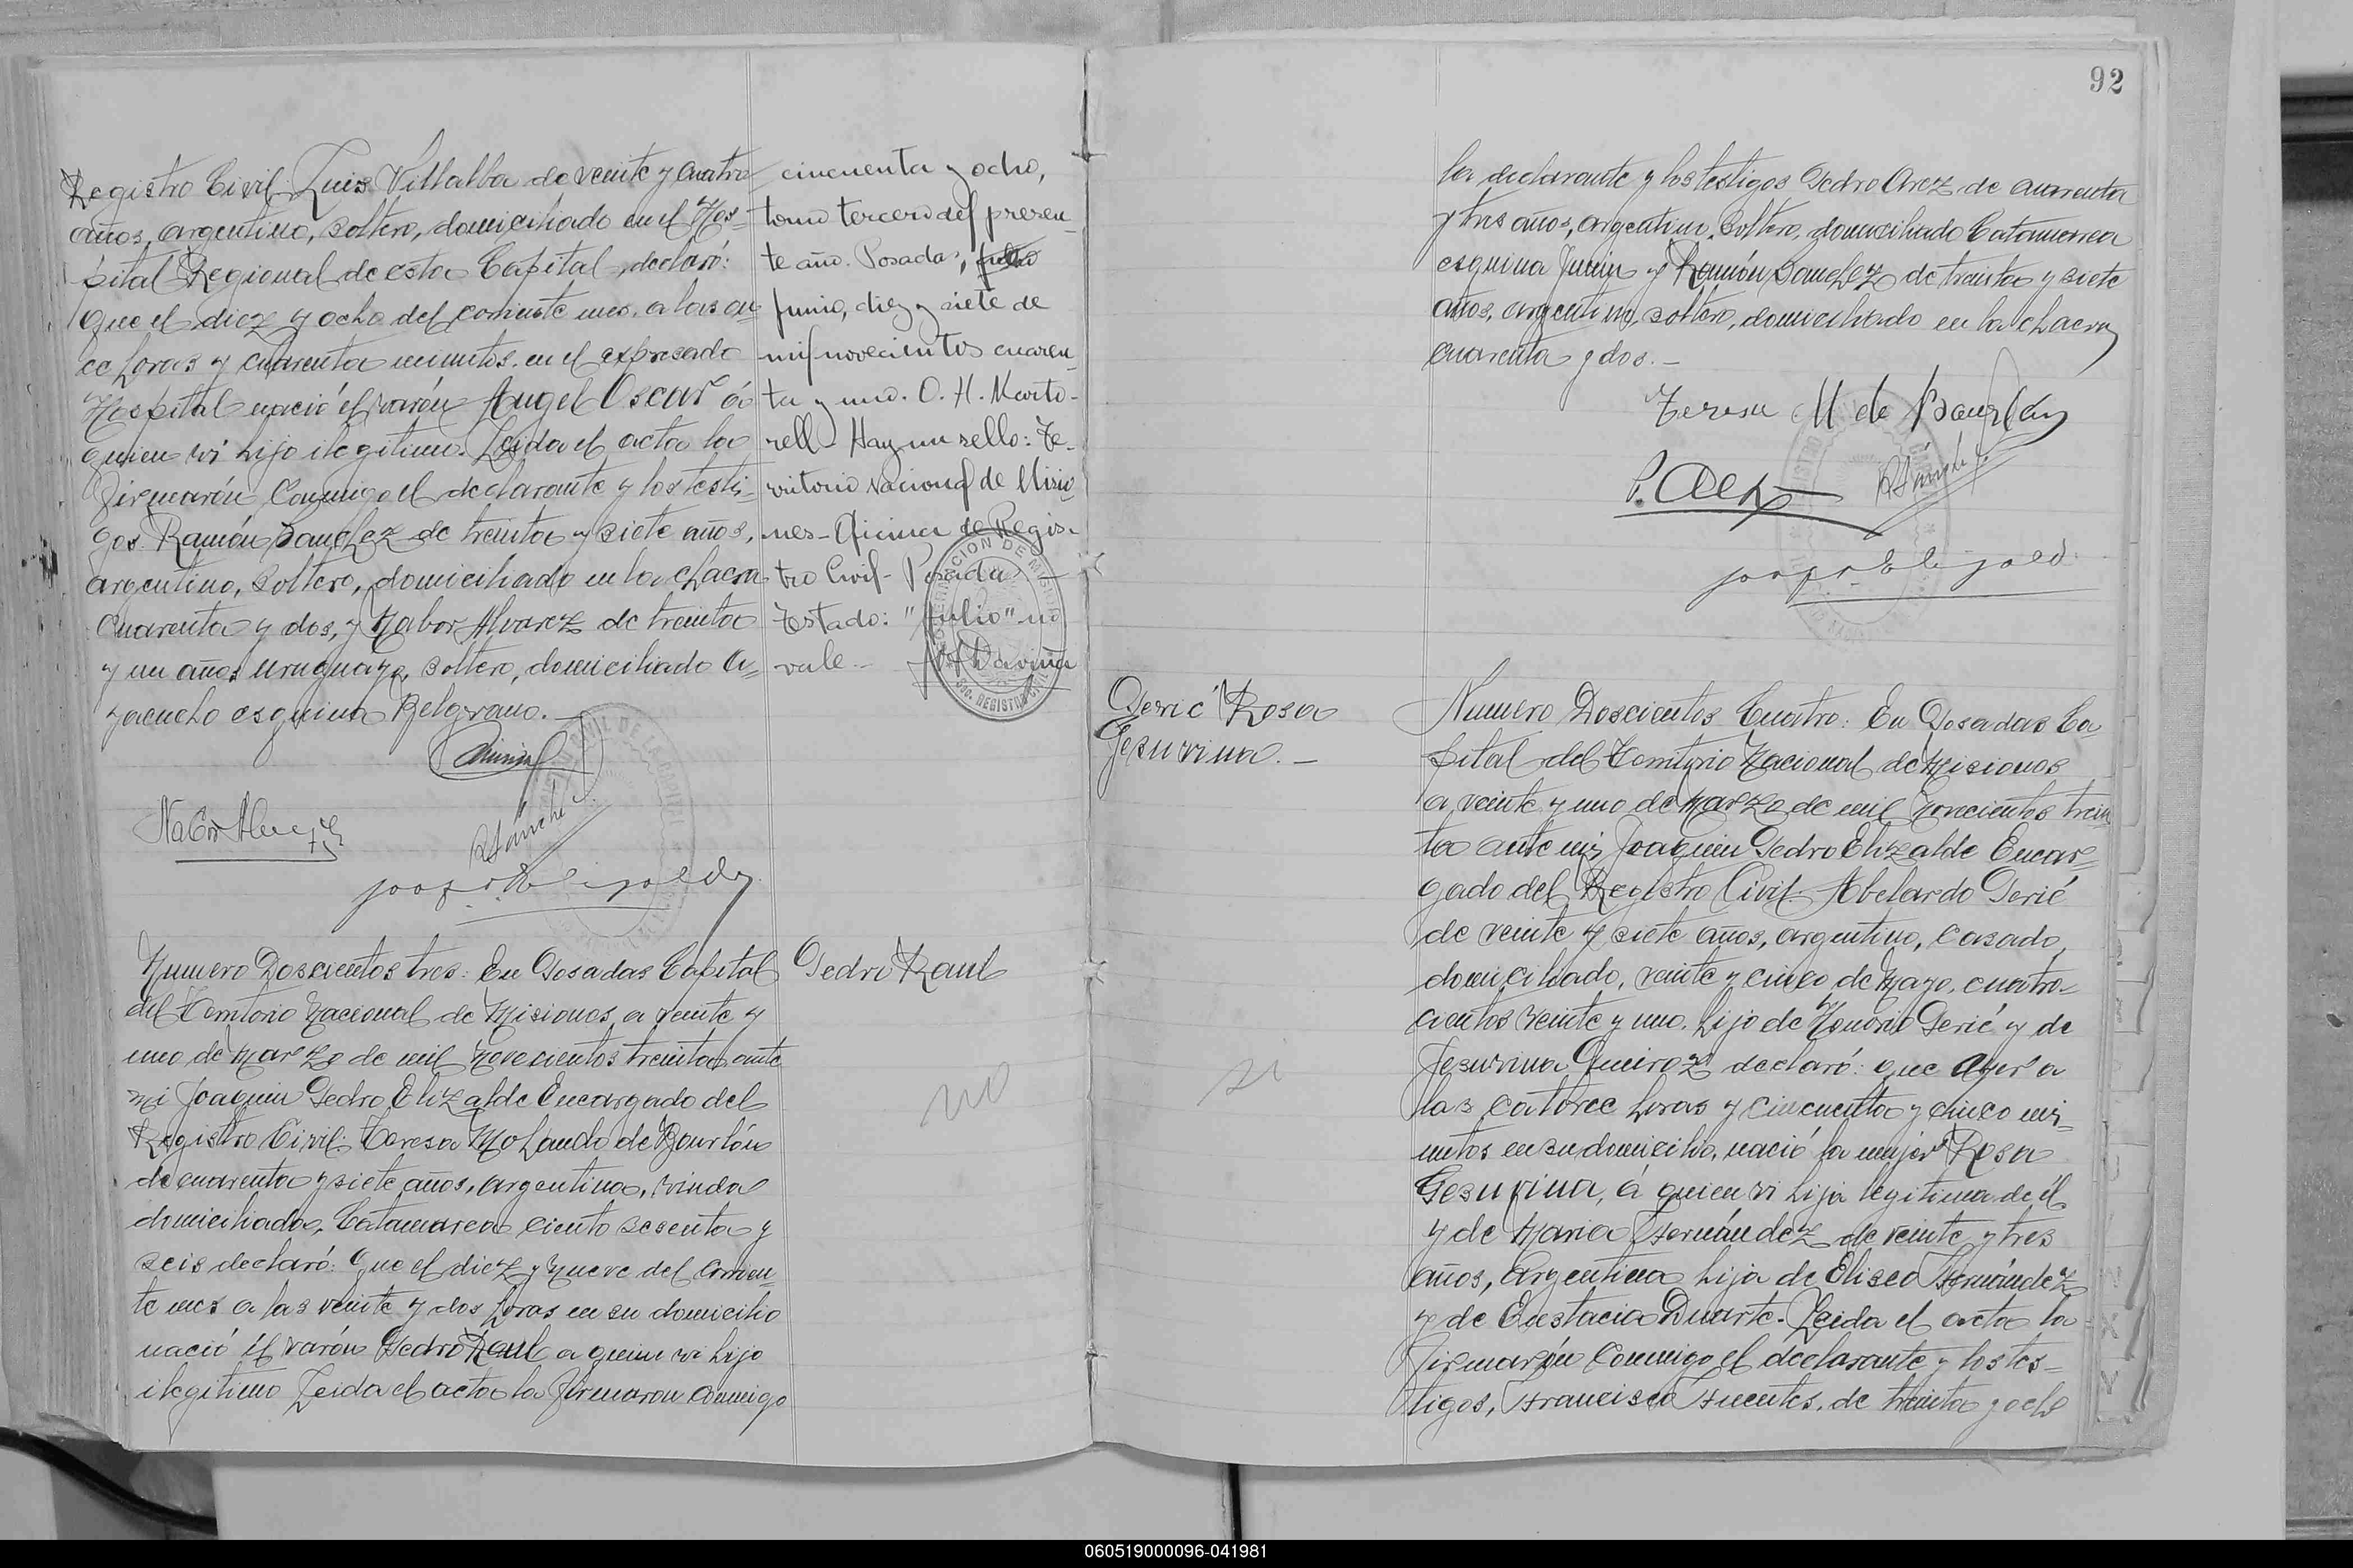 Registro Civil: Luis Villalba de veinte y cuatro
años, argentino, soltero, domiciliado en el Hos=
pital Regional de esta Capital, declaró:
Que el diez y ocho del corriente mes, a las on=
ce horas y cuarenta minutos, en el expresado
Hospital nació el varón Angel Oscar á
quien vi hijo ilegitimo. Leida el acta la
firmarón conmigo el declarante y los testi=
gos Ramón Sanchez de treinta y siete años,
argentino, soltero, domiciliado en la chacra
cuarenta y dos, y Nabor Alvarez de treinta
y un años, uruguayo, soltero, domiciliado A=
yacucho esquina Belgrano.-
cincuenta y ocho,
tomo tercero del presen-
te año. Posadas, julio
junio, diez y siete de
mil novecientos cuaren-
ta y uno. O. H. Marto-
rell - Hay un sello: Te-
rritorio Nacional de Misio-
nes - Oficina de Regis-
tro Civil - Posadas -
Testado: "julio" no
vale -
Numero Doscientos tres: En Posadas Capital
del Territorio Nacional de Misiones, a veinte y
uno de Marzo de mil novecientos treinta, ante
mi Joaquin Pedro Elizalde Encargado del
Registro Civil: Teresa de Bourlón
de cuarenta y siete años, argentina, viuda
domiciliada, Catamarca ciento sesenta y
seis declaró: Que el diez y nueve del corrien=
te mes a las veinte y dos horas en su domicilio
nació el varón Pedro Raul a quien vi hijo
ilegitimo Leida el acta la firmaron conmigo
Pedro Raul
no
92
la declarante y los testigos Pedro de cuarenta
y tres años, argentino, soltero, domiciliado Catamarca
esquina Junin y Ramón Sanchez de treinta y siete
años, argentino, soltero, domiciliado en la chacra
cuarenta y dos.-
Teresa M de
Perié Rosa
Gesuvina.-
si
Numero Doscientos Cuatro: En Posadas Ca=
pital del Territorio Nacional de Misiones
a veinte y uno de Marzo de mil novecientos trein=
ta ante mi, Joaquin Pedro Elizalde Encar=
gado del Registro Civil: Abelardo Perié
de veinte y siete años, argentino, casado,
domiciliado, veinte y cinco de Mayo, cuatro=
cientos veinte y uno, hijo de Honorio Perié y de
Jesuvina Queiroz declaró: que ayer a
las catorce horas y cincuenta y cinco mi=
nutos en su domicilio, nació la mujer Rosa
Gesuvina, á quien vi hija legitima de él
y de Maria Hernández de veinte y tres
años, Argentina hija de Eliseo Hernández
y de Eustacia Duarte. Leida el acta la
firmarón conmigo el declarante y los tes=
tigos, Francisco Fuentes, de treinta y ocho
060519000096-041981